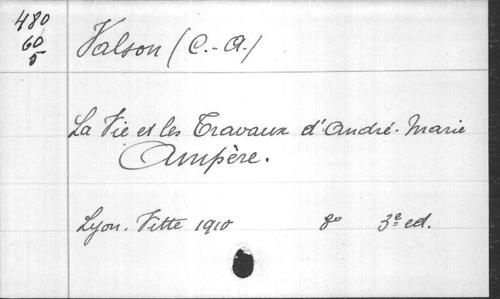 480
60
5
Valson (C.-A.)
La Vie et les Travaux d'André-Marie
Ampère.
Lyon. Vitte 1910 8° 3e ed.